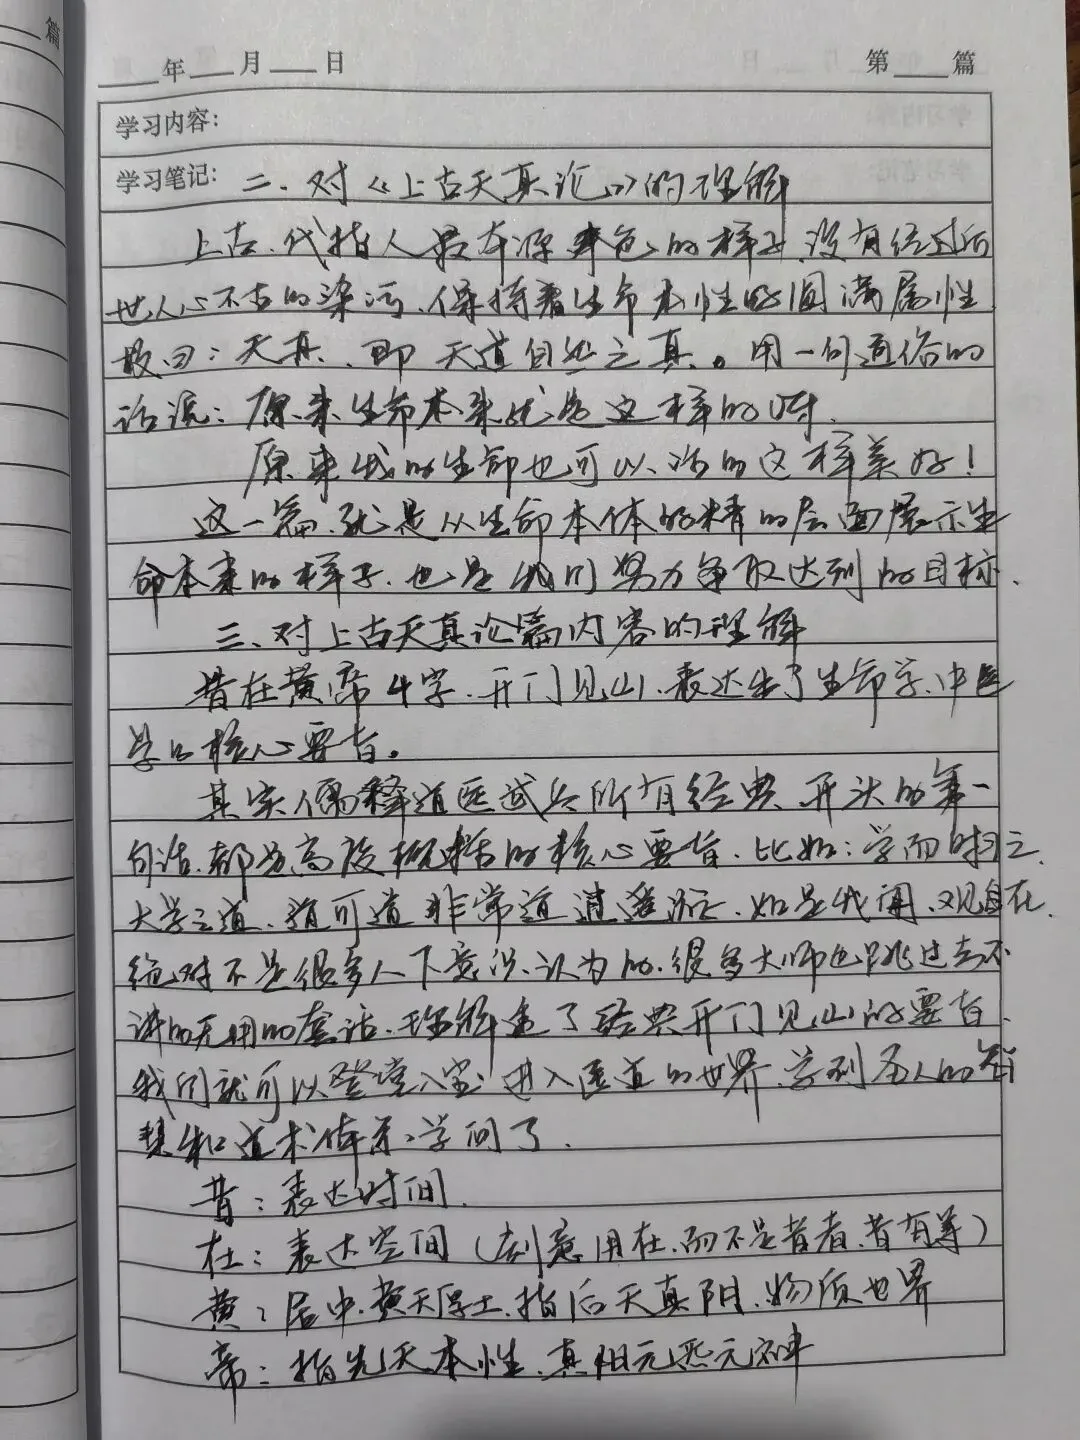 篇
年 月 日 第 篇
学习内容：
学习笔记：二、对《上古天真论》的理解
上古、代指人最本源本色的样子、没有经过后
世人心不古的染污、保持着生命本性的圆满属性
故曰：天真、即天道自然之真。用一句通俗的
话说：原来生命本来就是这样的呀、
原来我的生命也可以活的这样美好！
这一篇、就是从生命本体的精的层面展示生
命本来的样子、也是我们努力争取达到的目标、
三、对上古天真论篇内容的理解
昔在黄帝4字、开门见山、表达出了生命学、中医
学的核心要旨。
其实儒释道医武兵所有经典开头的第一
句话、都为高度概括的核心要旨、比如：学而时习之、
大学之道、道可道非常道、逍遥游、如是我闻、观自在、
绝对不是很多人下意识、认为的、很多大师也跳过去不
讲的无用的套话、理解透了经典开门见山的要旨、
我们就可以登堂入室、进入医道的世界、学到圣人的智
慧和道术体系、学问了、
昔：表达时间、
在：表达空间（刻意用在、而不是昔者、昔有等）
黄：居中、黄天厚土、指后天真阴、物质世界
帝：指先天本性、真阳元炁元神